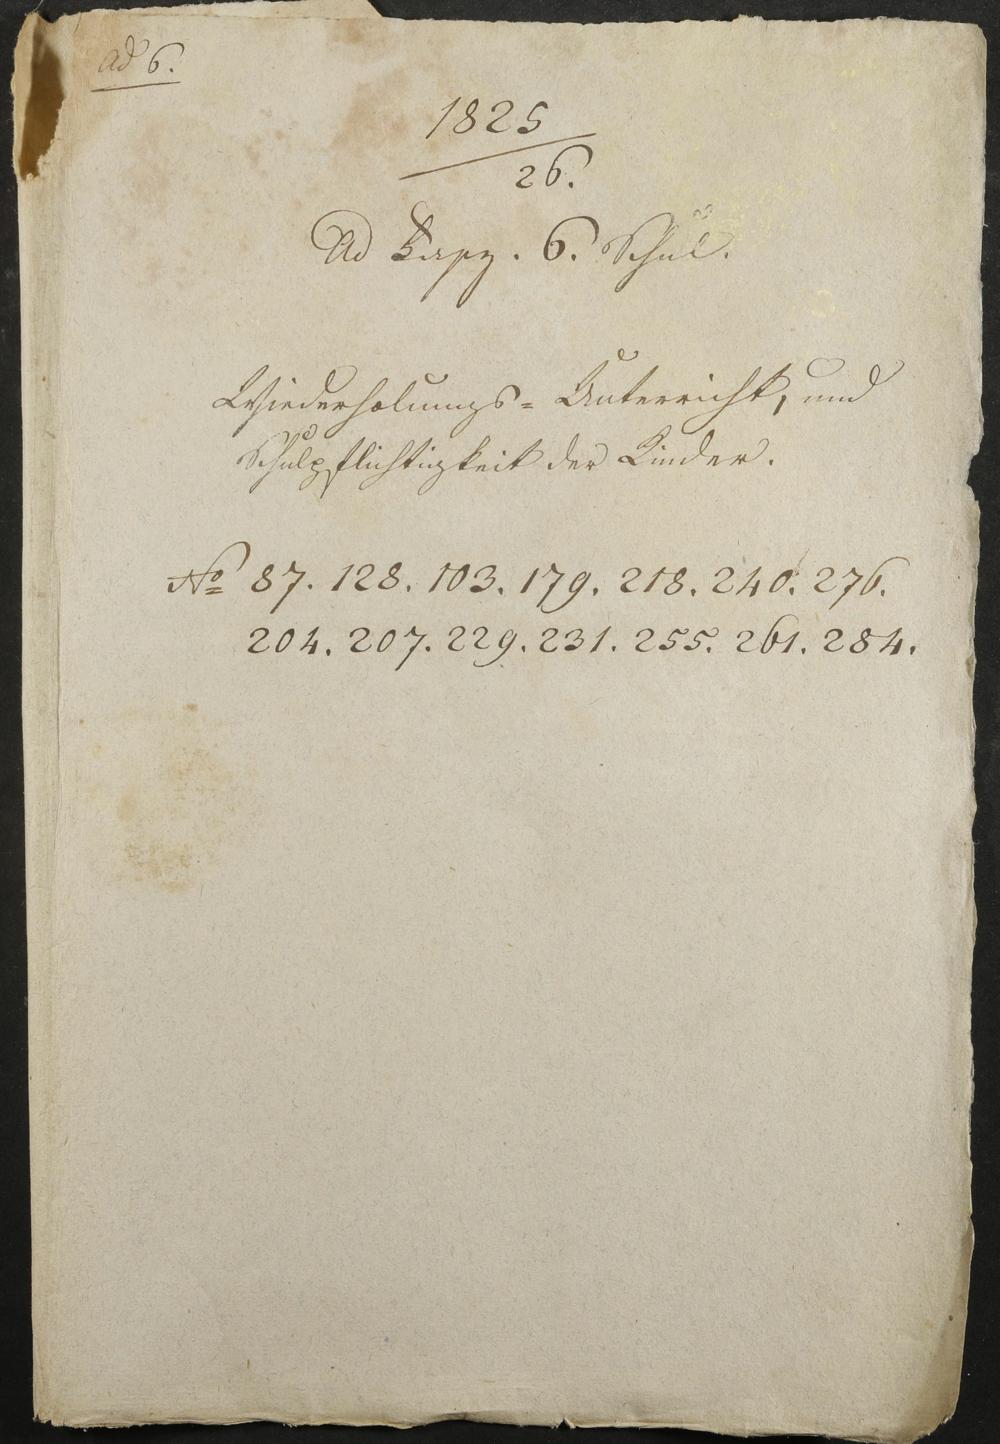 ad 6.
1825
26.
Ad 6. Schul.
Wiederholungs= Unterricht, und
Schulpflichtigkeit der Kinder.
No 87. 128. 103. 179. 218. 240. 276.
204. 207. 229. 231. 255. 261. 284.